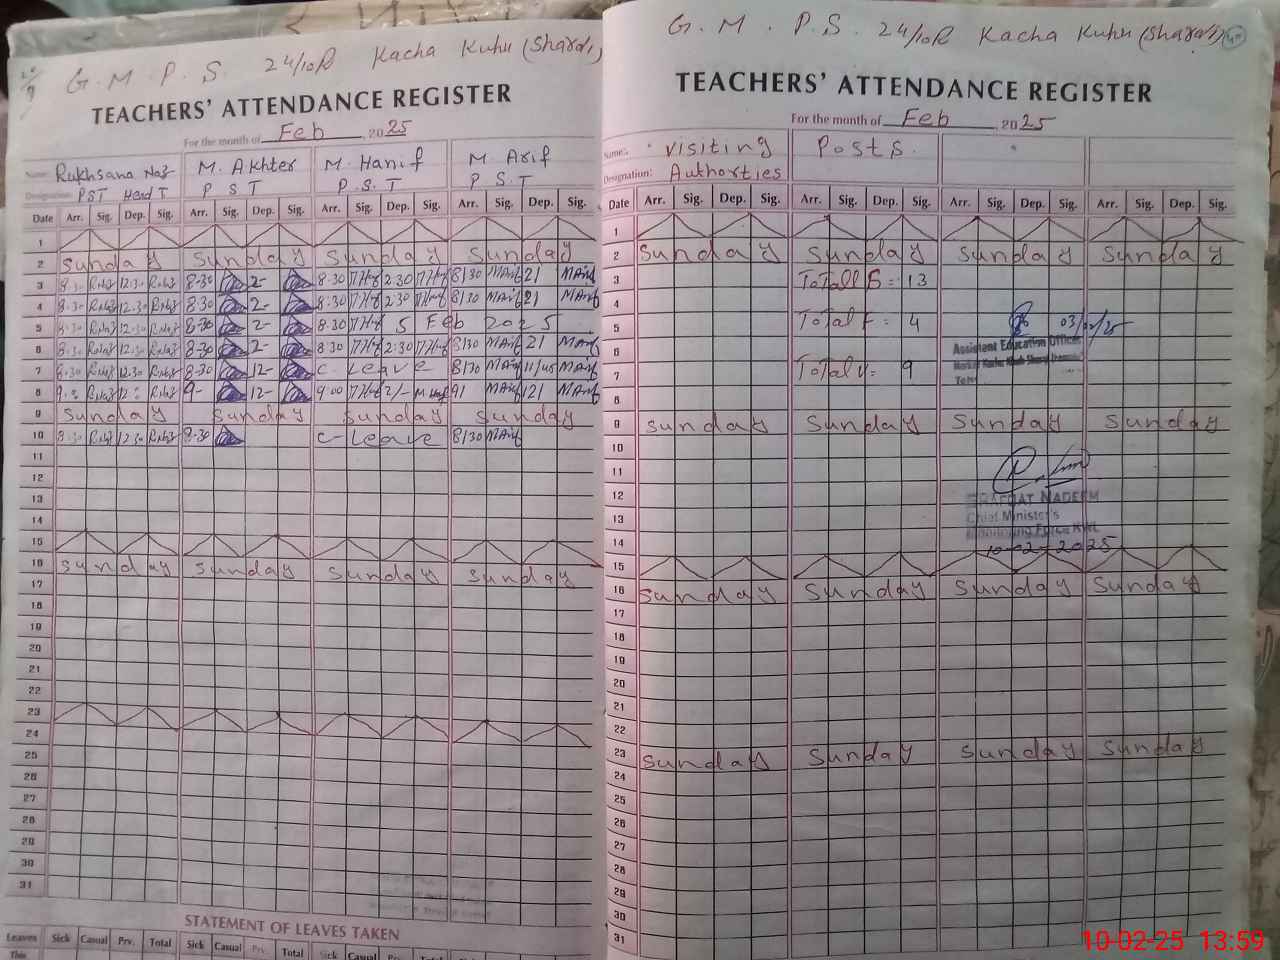 G. M. P. S. 24/10R Kacha Kuhu (Sharqi)
TEACHERS' ATTENDANCE REGISTER
For the month of Feb , 2025
Name: Rukhsana Naz M. Akhter M. Hanif M. Arif
Designation: PST Head T P S T P. S. T P S. T
Date Arr. Sig. Dep. Sig. Arr. Sig. Dep. Sig. Arr. Sig. Dep. Sig. Arr. Sig. Dep. Sig.
1
2 Sunday Sunday Sunday Sunday
3 8.30 RNaz 12.30 RNaz 8-30 2- 8.30 2.30 8/30 MArif 2/ MArif
4 8.30 RNaz 12.30 RNaz 8-30 2- 8.30 2.30 8/30 MArif 2/ MArif
5 8.30 RNaz 12.30 RNaz 8-30 2- 8.30 5 Feb 2025
6 8.30 RNaz 12.30 RNaz 8-30 2- 8.30 2.30 8/30 MArif 2/ MArif
7 8.30 RNaz 12.30 RNaz 8-30 12- C. Leave 8/30 MArif 11/45 MArif
8 RNaz RNaz 9- 12- 9.00 2/- 9/ MArif 2/ MArif
9 Sunday Sunday Sunday Sunday
10 8.30 RNaz 12.30 RNaz 8-30 C-Leave 8/30 MArif
11
12
13
14
15
16 Sunday Sunday Sunday Sunday
17
18
19
20
21
22
23
24
25
26
27
28
29
30
31
STATEMENT OF LEAVES TAKEN
Leaves Sick Casual Prv. Total Sick Casual Prv. Total Sick Casual Prv. Total Sick Casual Prv. Total
This
G. M. P. S. 24/10R Kacha Kuhu (Sharqi)
TEACHERS' ATTENDANCE REGISTER
For the month of Feb , 2025
Name: Visiting Posts.
Designation: Authorties
Date Arr. Sig. Dep. Sig. Arr. Sig. Dep. Sig. Arr. Sig. Dep. Sig. Arr. Sig. Dep. Sig.
1
2 Sunday Sunday Sunday Sunday
3 Total S = 13
4
5 Total F = 4 03/02/25
Assistant Education Officer
6
7 Total V = 9
8
9 Sunday Sunday Sunday Sunday
10
11
12 NADEEM
13 Chief Minister's
Monitoring Force KWL
14 10-02-2025
15
16 Sunday Sunday Sunday Sunday
17
18
19
20
21
22
23 Sunday Sunday Sunday Sunday
24
25
26
27
28
29
30
31
10-02-25 13:59